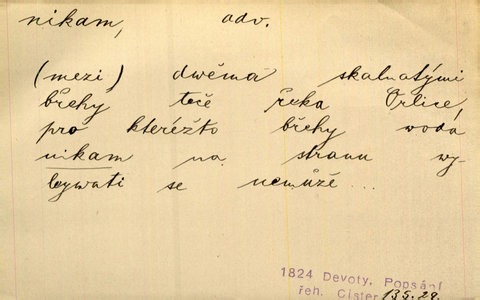 nikam, adv.
(mezi) dwěma skalnatými
břehy teče řeka Orlice,
pro kterézto břehy woda
nikam na stranu wy-
lewati se nemůže ...
1824 Devoty, Popsání
řeh. Cister 135.29.